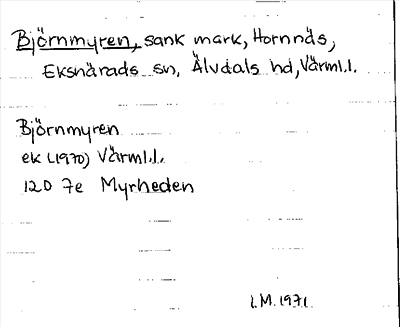 Björnmyren, sank mark, Hornnäs,
Eksnärads sn, Älvdals hd, Värml.l.
Björnmyren
ek (1970) Värml.l.
12D 7e Myrheden
I.M. 1971.